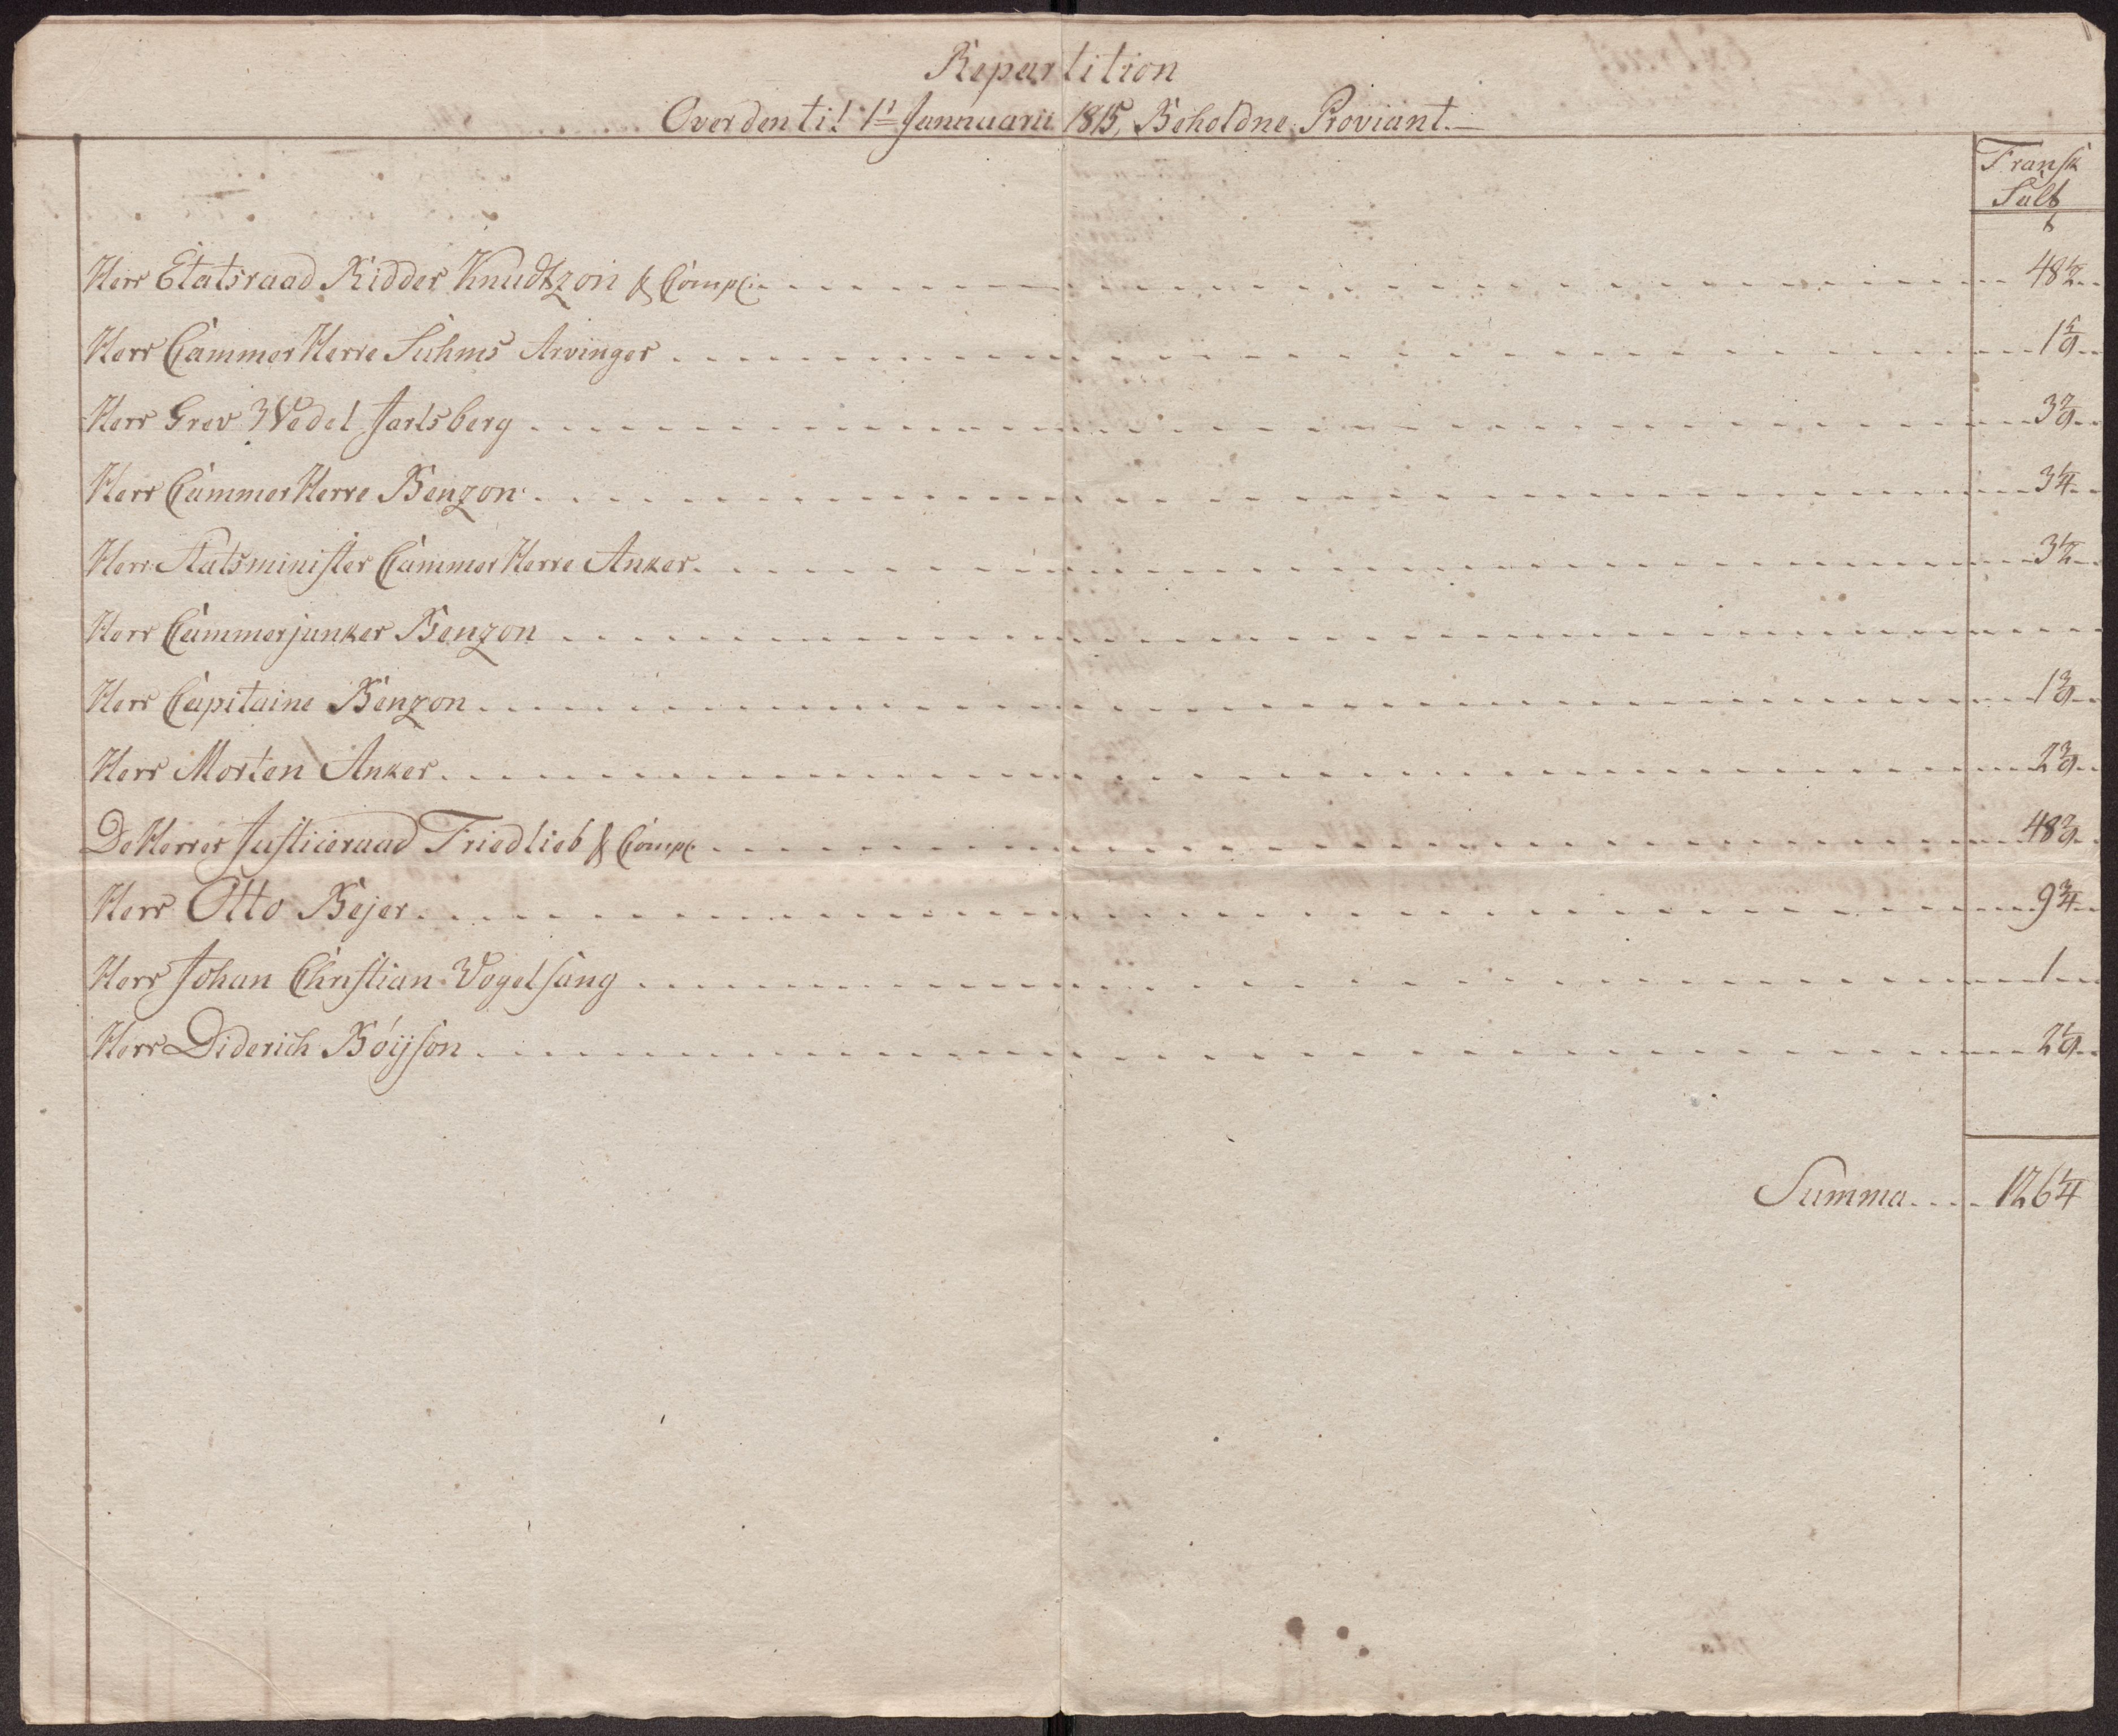 Repartition
Over den til 1ste Jannuarii 1815, Beholdne Proviant.
Fransk
Salt
Herr Etatsraad Ridder Knudtzon & Comp: 48 1/2
Herr CammerHerre Suhms Arvinger 1 5/8
Herr Grev Wedel Jarlsberg 3 7/8
Herr CammerHerre Benzon 3 1/4
Herr Statsminister CammerHerre Anker 3 1/2
Herr Cammerjunker Benzon
Herr Capitaine Benzon 1 3/8
Herr Morten Anker 2 3/8
De Herrer Justiceraad Friedlieb & Comp: 48 7/8
Herr Otto Bejer 9 3/4
Herr Johan Christian Vogelsang 1
Herr Diderich Bóijson 2 1/8
Summa 126 1/4